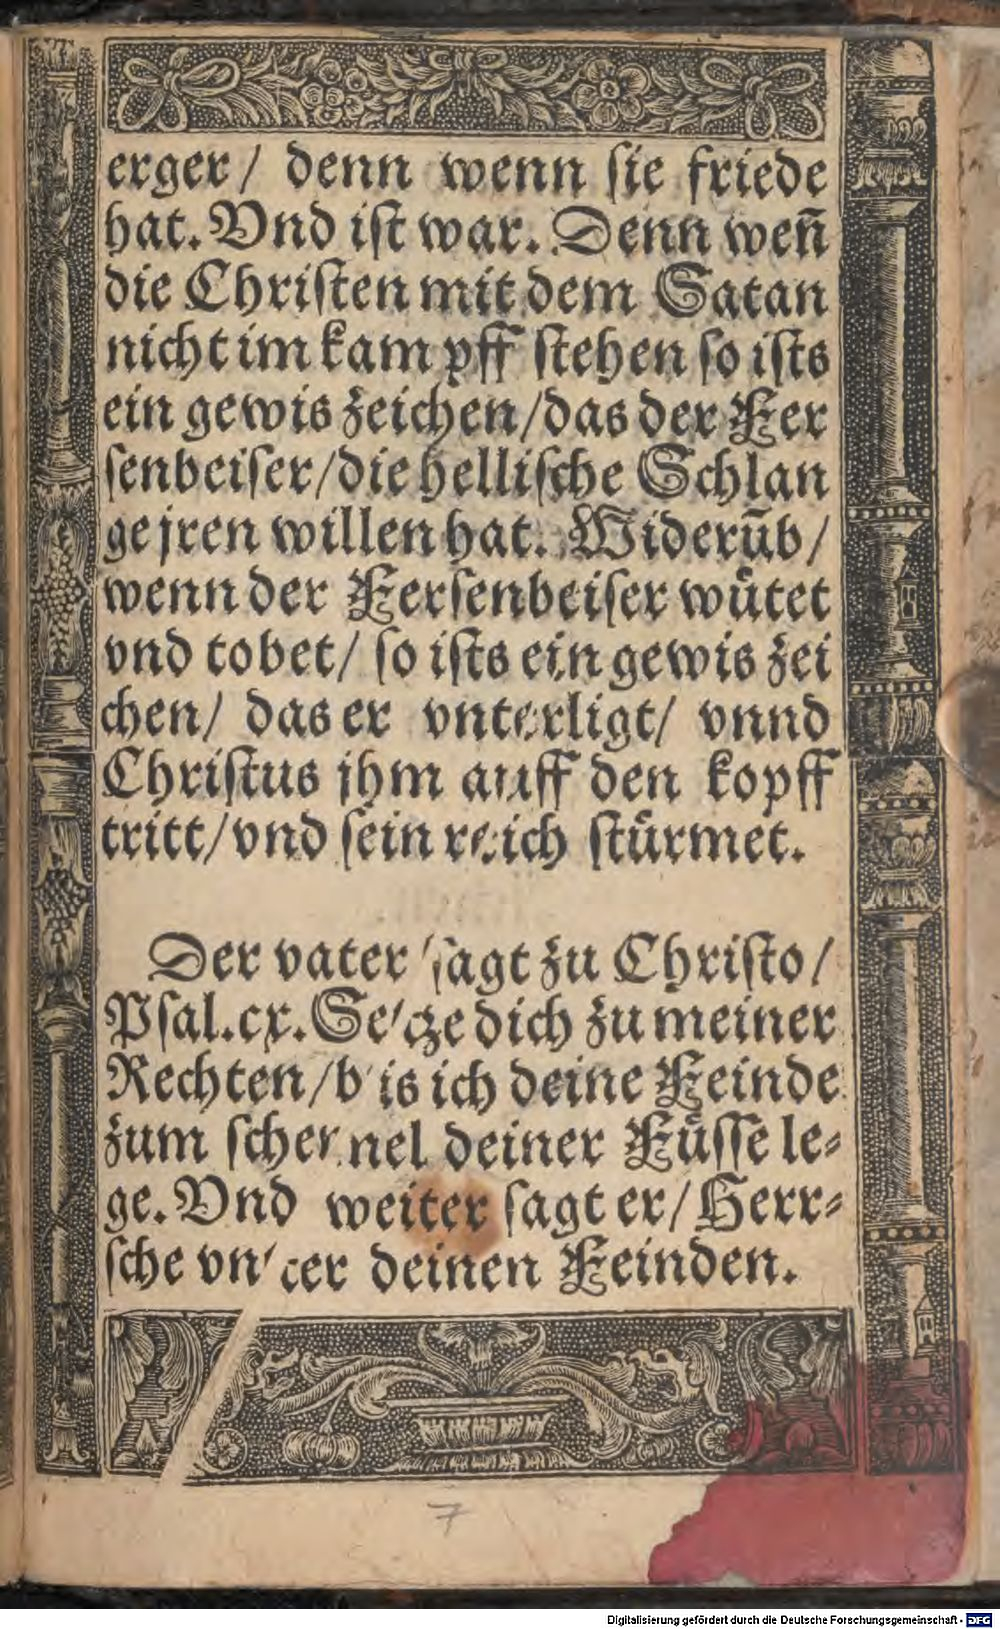 erger/ denn wenn ſie friede
hat. Vnd iſt war. Denn weñ
die Chriſten mit dem Satan
nicht im kampff ſtehen ſo iſts
ein gewis zeichen/das der Fer
ſenbeiſer/die helliſche Schlan
ge jren willen hat. Widerūb/
wenn der Ferſenbeiſer wuͤtet
vnd tobet/ ſo iſts ein gewis zei
chen/ das er vnterligt/ vnnd
Chriſtus jhm auff den kopff
tritt/vnd ſein reich ſtuͤrmet.
Der vater ſagt zu Chriſto/
Pſal.cx. Setze dich zu meiner
Rechten/bis ich deine Feinde
zum ſchemel deiner Fuͤſſe le⸗
ge. Vnd weiter ſagt er/ Herr⸗
ſche vnter deinen Feinden.
7
Digitalisierung gefördert durch die Deutsche Forschungsgemeinschaft - DFG